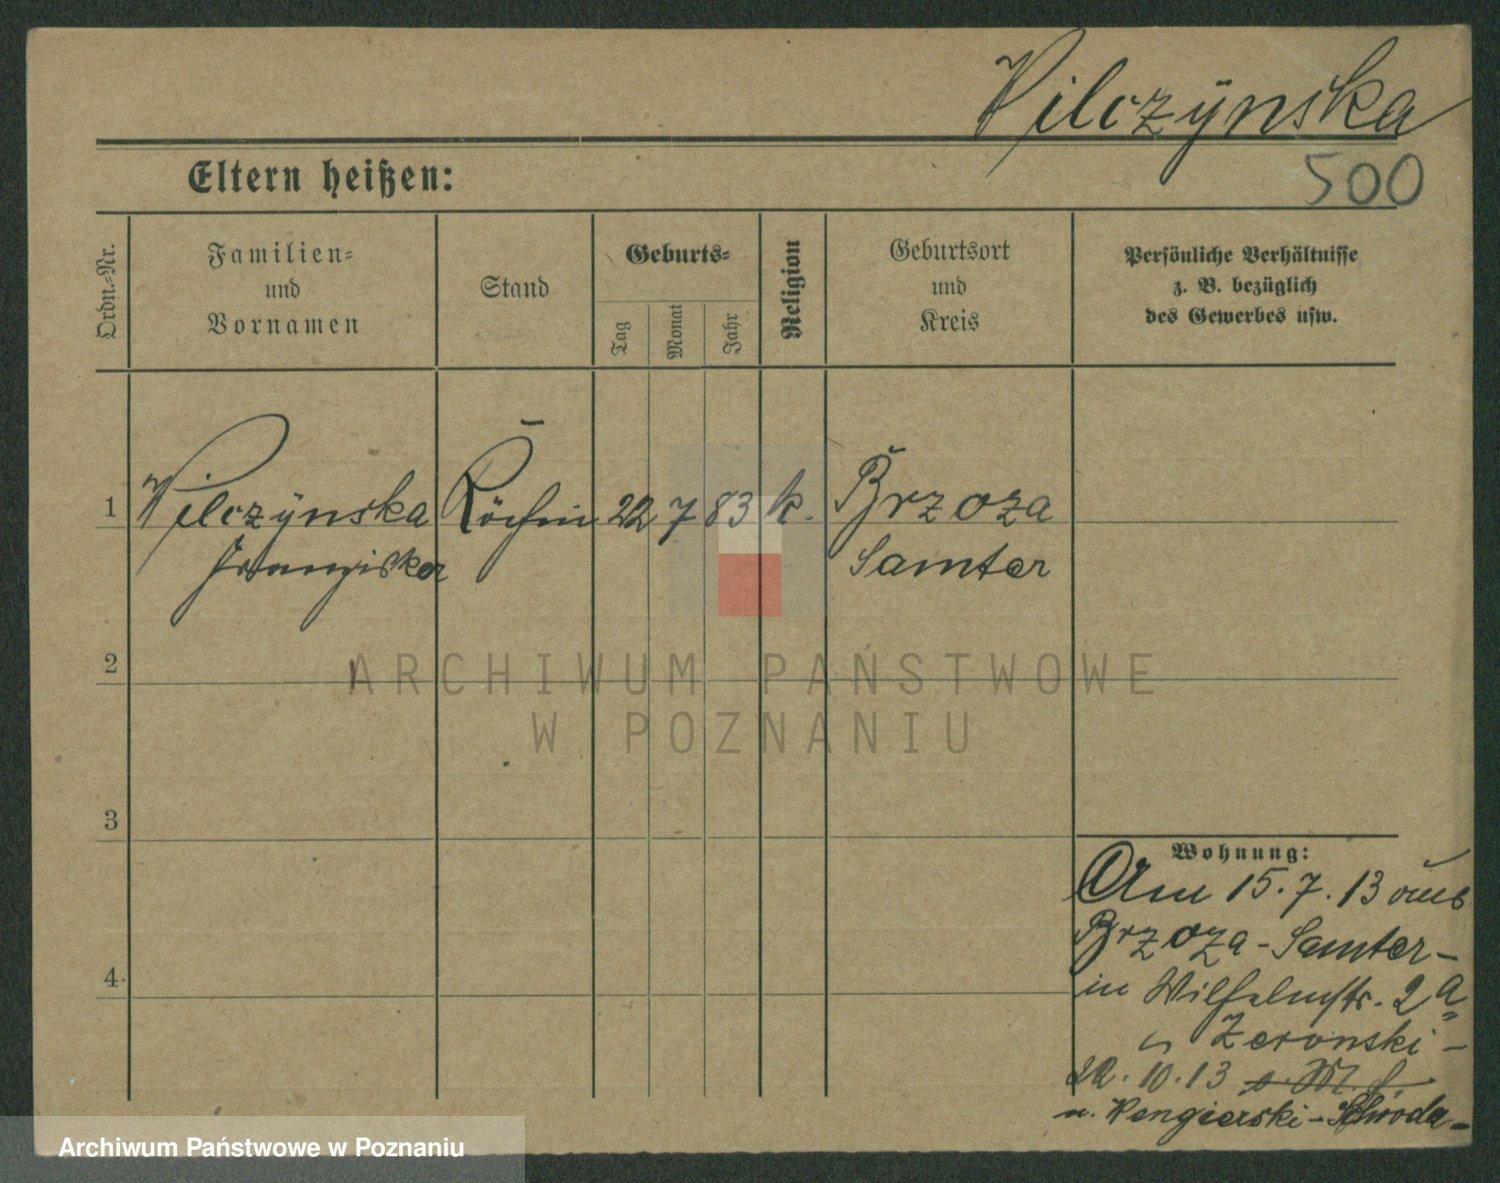 Wilczÿnska
500
Eltern heißen:
Ordn.-Nr.
Familien-
und
Vornamen
Stand
Geburts-
Tag
Monat
Jahr
Religion
Geburtsort
und
Kreis
Persönliche Verhältnisse
z. B. bezüglich
des Gewerbes usw.
1
Wilczÿnska
Franziska
Köchin
22
7
83
k.
Brzoza
Samter
2
ARCHIWUM PAŃSTWOWE
W POZNANIU
3
4
Wohnung:
Am 15.7.13 aus
Brzoza-Samter-
in Wilhelmstr. 2a
Zeronski-
22.10.13
n. Wengierski-Schroda-
Archiwum Państwowe w Poznaniu